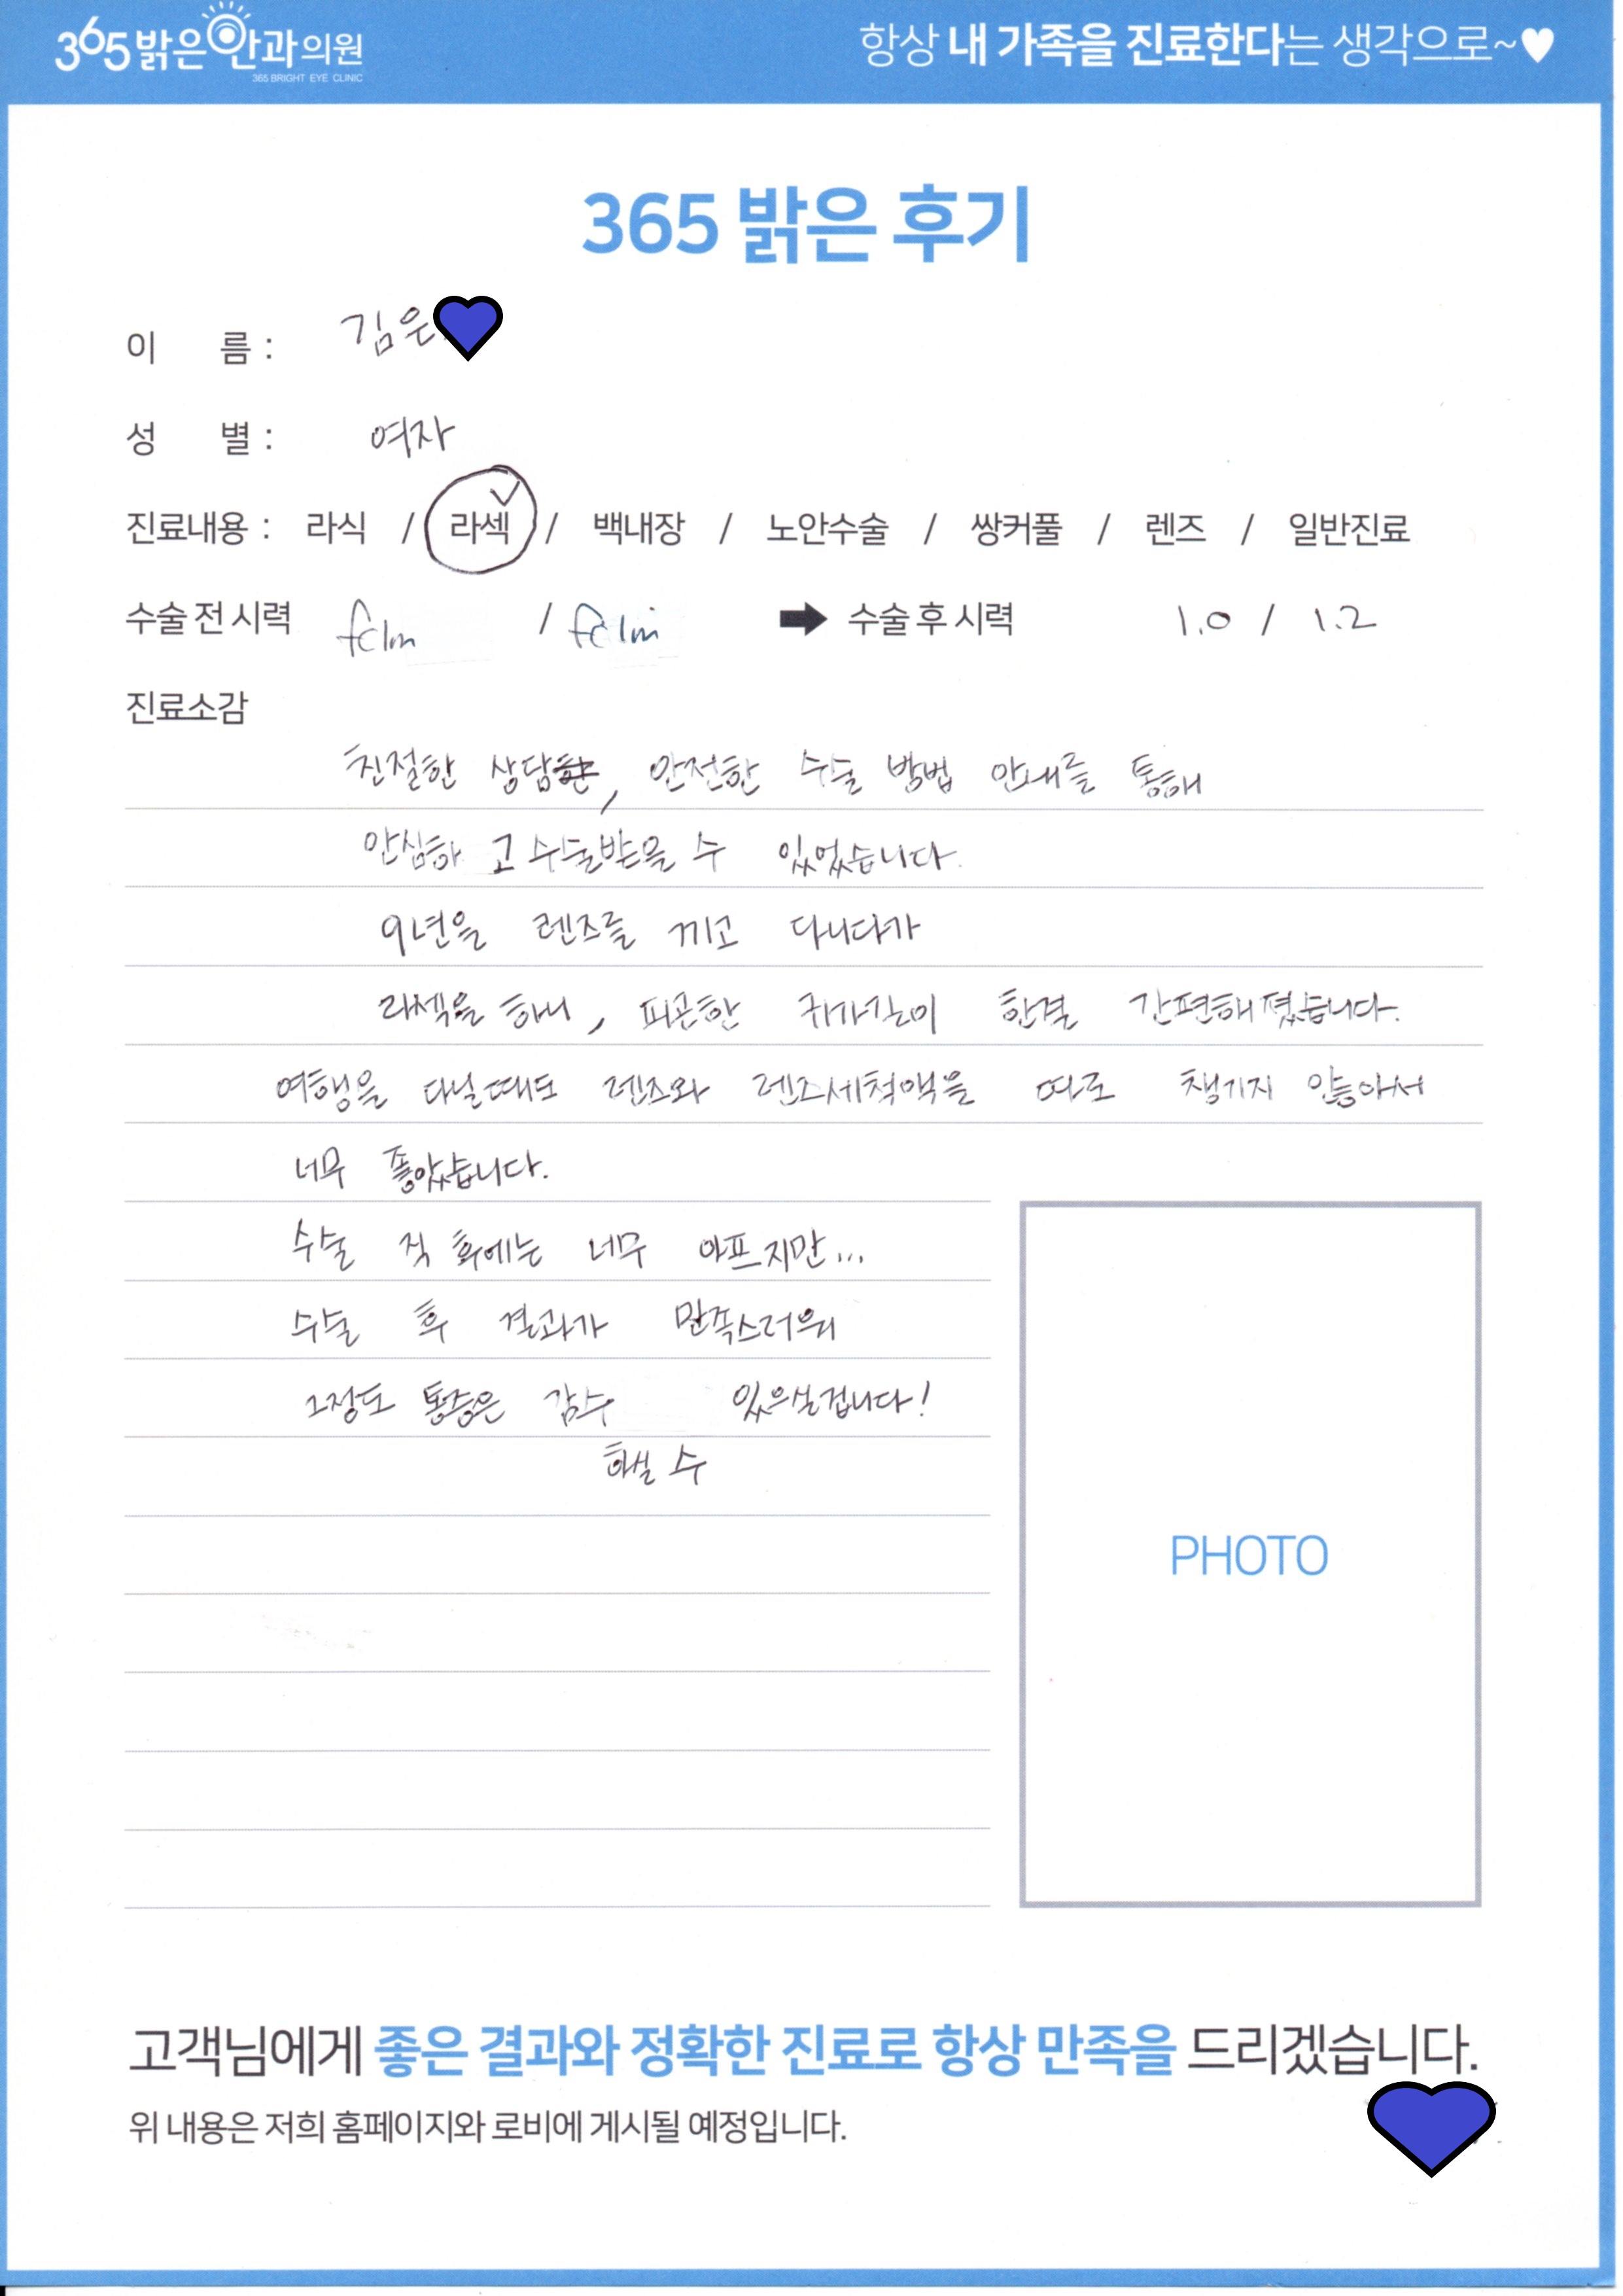 365밝은안과의원
365 BRIGHT EYE CLINIC
항상 내 가족을 진료한다는 생각으로~♥
365 밝은 후기
이 름 : 김은
성 별 : 여자
진료내용 : 라식 / 라섹 / 백내장 / 노안수술 / 쌍커풀 / 렌즈 / 일반진료
수술 전 시력 / ➡ 수술 후 시력 1.0 / 1.2
진료소감
친절한 상담, 안전한 수술 방법 안내를 통해
안심하고 수술받을 수 있었습니다.
9년을 렌즈를 끼고 다니다가
라섹을 하니, 피곤한 귀가길이 한결 간편해졌습니다.
여행을 다닐때도 렌즈와 렌즈세척액을 따로 챙기지 않아서
너무 좋았습니다.
수술 직 후에는 너무 아프지만...
수술 후 결과가 만족스러워
그정도 통증은 감수 있으실겁니다!
하실 수
PHOTO
고객님에게 좋은 결과와 정확한 진료로 항상 만족을 드리겠습니다.
위 내용은 저희 홈페이지와 로비에 게시될 예정입니다.